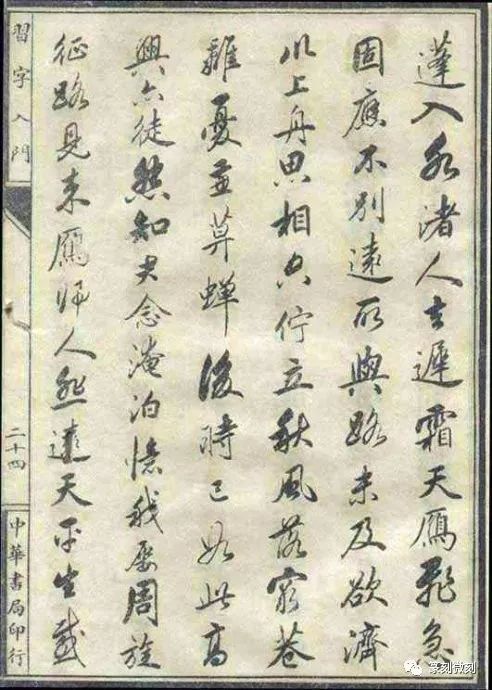 蓬入水渚人去遲霜天鴈飛急
固應不別遠所與路未及欲濟
川上舟思相空佇立秋風落窮巷
離憂兼莫蟬後時已如此高
興亦徒然知君念淹泊憶我屢周旋
征路見來鴈歸人悲遠天平生感
習字入門
二十四
中華書局印行
篆刻微刻